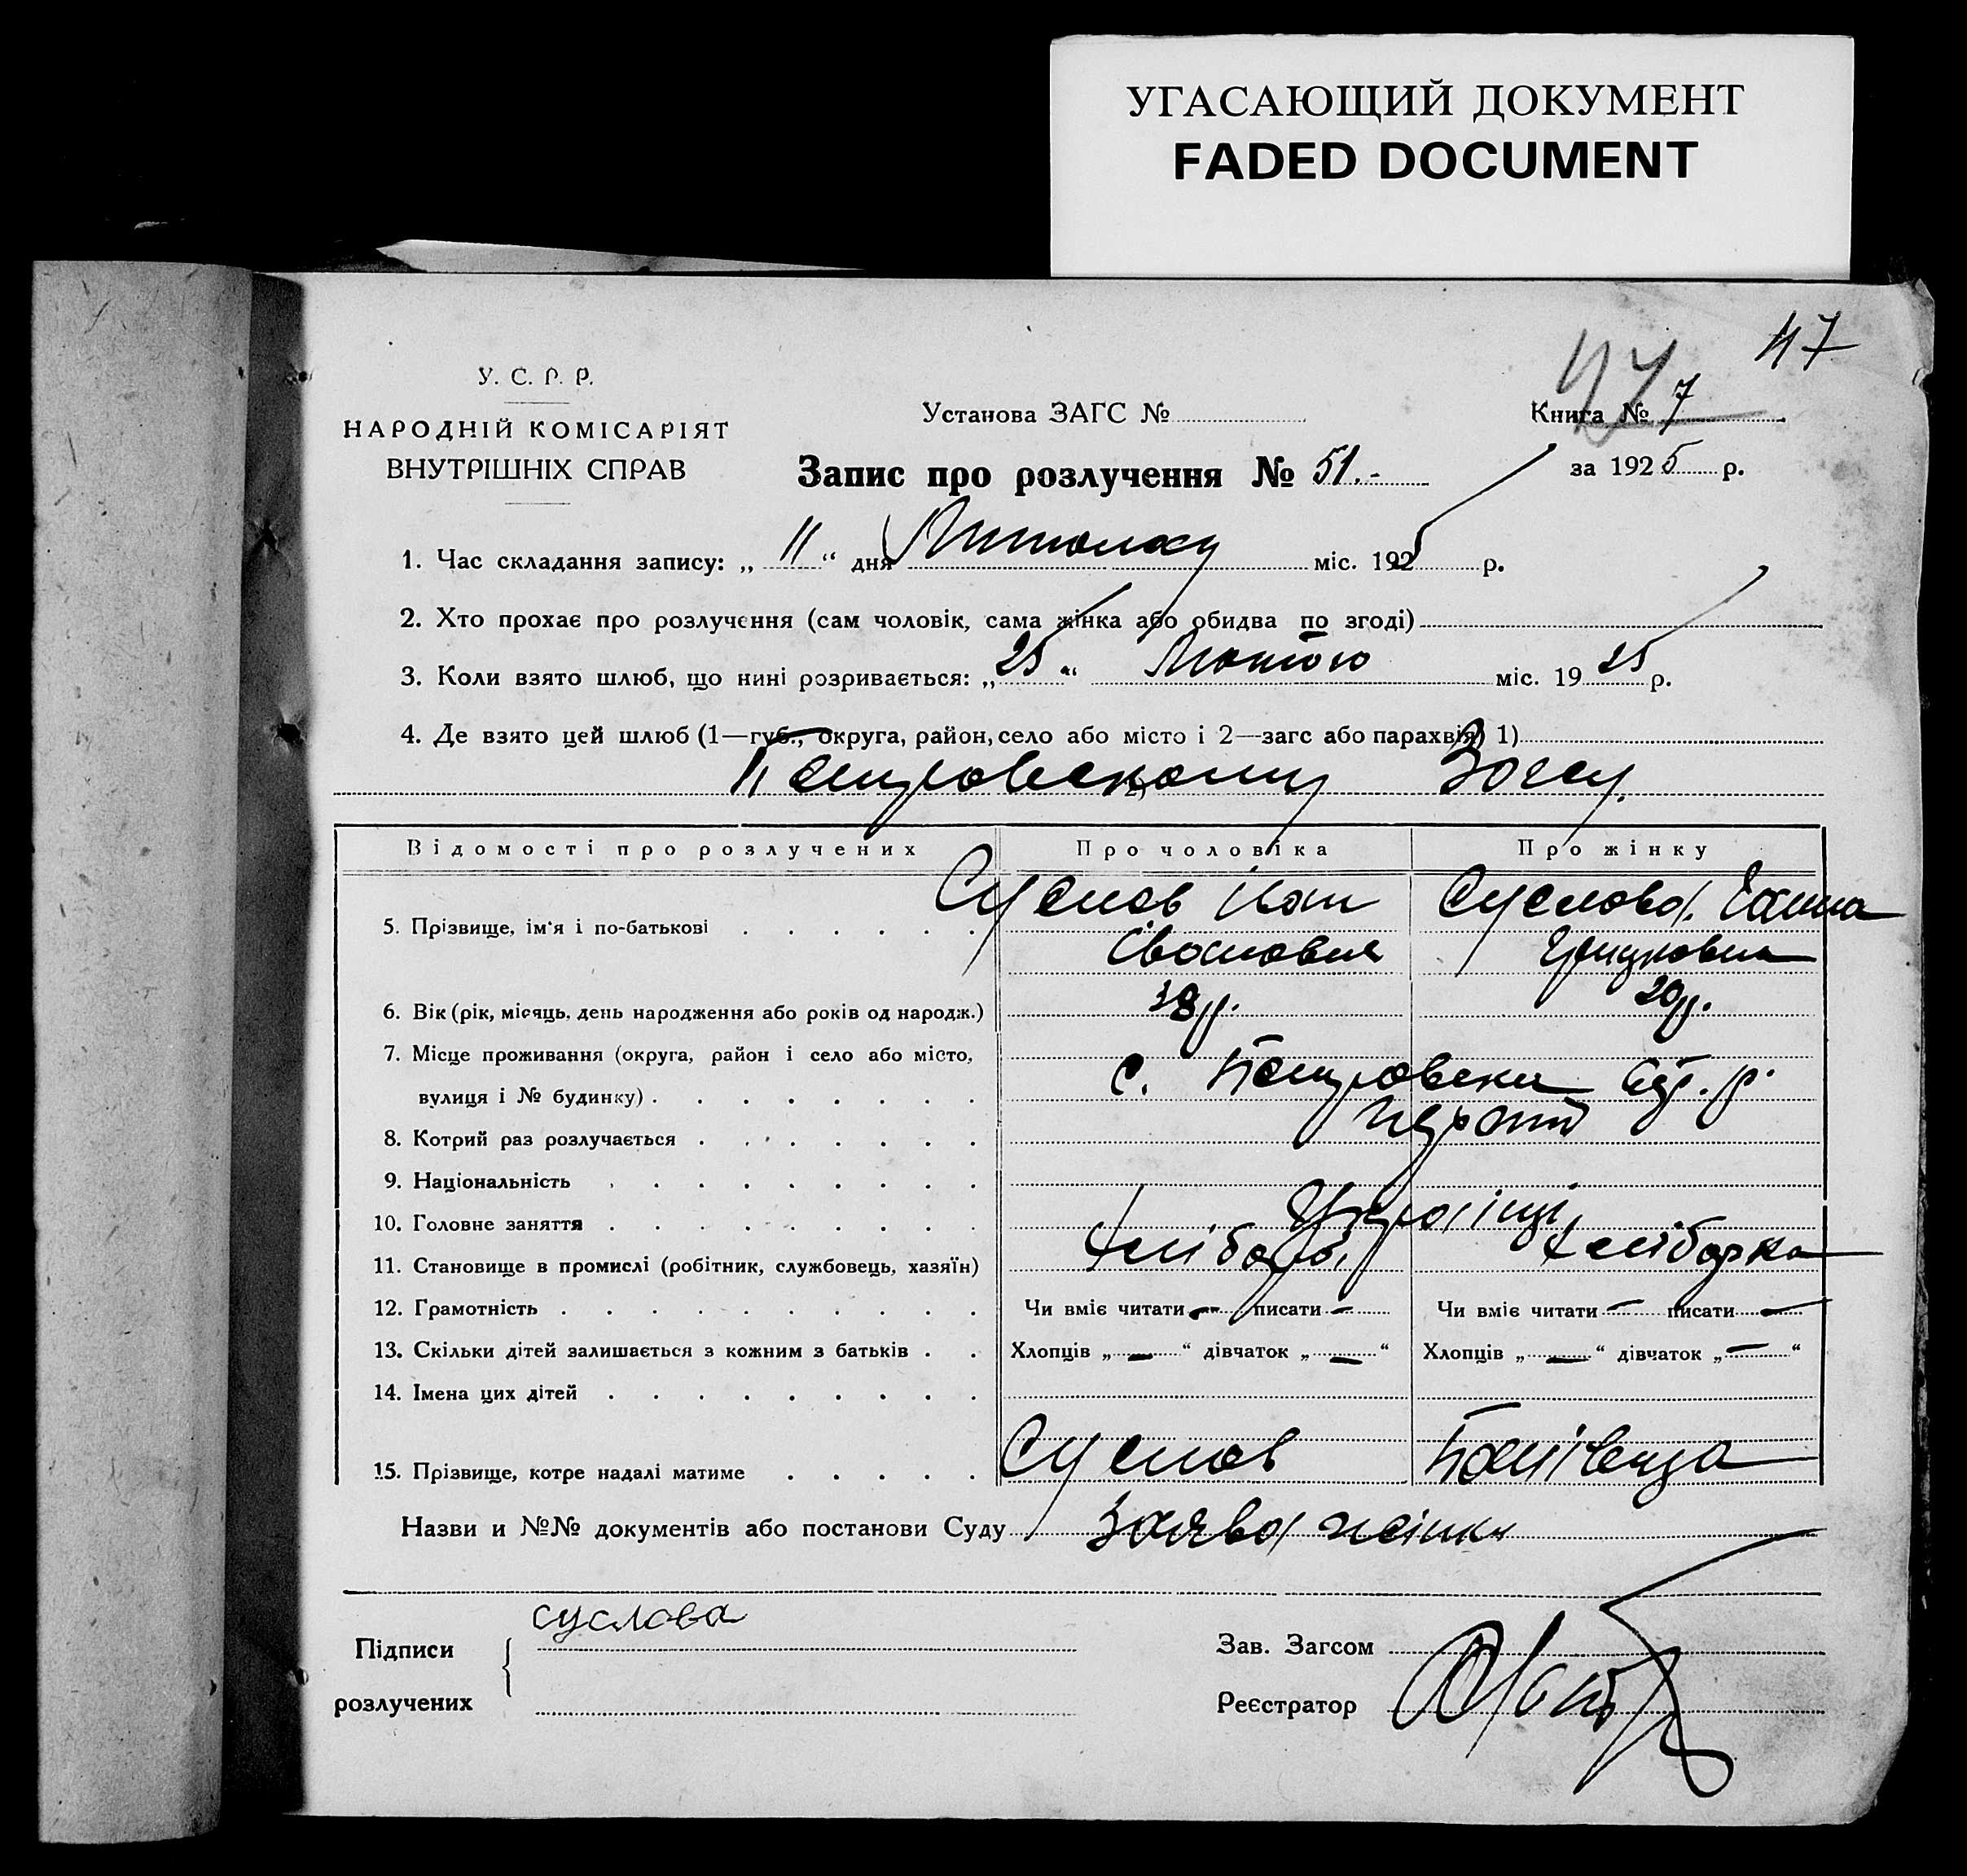 УГАСАЮЩИЙ ДОКУМЕНТ
FADED DOCUMENT
47
47
У. С. Р. Р.
НАРОДНІЙ КОМІСАРІЯТ
ВНУТРІШНІХ СПРАВ
Установа ЗАГС №
Книга № 7
за 1925 р.
Запис про розлучення № 51.-
1. Час складання запису: „ 11 “ дня Листопаду міс. 1925 р.
2. Хто прохає про розлучення (сам чоловік, сама жінка або обидва по згоді)
3. Коли взято шлюб, що нині розривається: „ 25 “ Лютого міс. 19 25 р.
4. Де взято цей шлюб (1—губ., округа, район, село або місто і 2—загс або парахвія) 1)
2) Петровському Загсу.
Відомості про розлучених Про чоловіка Про жінку
5. Прізвище, ім'я і по-батькові Суслов Іван Суслова Ганна
6. Вік (рік, місяць, день народження або років од народж.) 20р.
7. Місце проживання (округа, район і село або місто,
вулиця і № будинку) с. Петровски
8. Котрий раз розлучається перший
9. Національність
10. Головне заняття Українці
11. Становище в промислі (робітник, службовець, хазяїн) хлібороб хліборка
12. Грамотність Чи вміє читати — писати — Чи вміє читати — писати —
13. Скільки дітей залишається з кожним з батьків Хлопців „ — “ дівчаток „ — “ Хлопців „ — “ дівчаток „ — “
14. Імена цих дітей
15. Прізвище, котре надалі матиме Суслов
Назви и №№ документів або постанови Суду Заява жінки
Підписи
розлучених
суслова
Зав. Загсом
Реєстратор